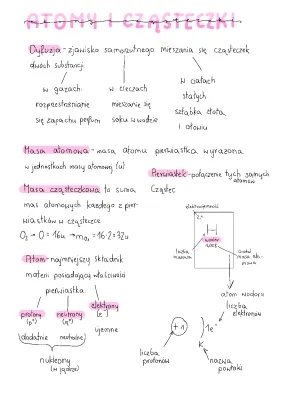 ATOMY I CZĄSTECZKI
Dyfuzja - zjawisko samorzutnego mieszania się cząsteczek
dwóch substancji
w gazach:
rozprzestrzenianie
się zapachu perfum
w cieczach
mieszanie się
soku w wodzie
w ciałach
stałych
sztabka złota
i ołowiu
Masa atomowa - masa atomu pierwiastka wyrażona
w jednostkach masy atomowej (u)
Pierwiastek - połączenie tych samych
atomów
Masa cząsteczkowa to suma
mas atomowych każdego z pier-
wiastków w cząsteczce
O₂ → O = 16u → 16·2 = 32u
Cząstec
elektroujemność
2,1
H
wodór
liczba
masa ato-
mowa
Atom - najmniejszy składnik
materii posiadający właściwości
pierwiastka
protony
(p⁺)
neutrony
(n⁰)
elektrony
(e⁻)
(dodatnie
neutralne)
ujemne
nukleony
(w jądrze)
atom wodoru
liczba
elektronów
+1
1e⁻
K
liczba
protonów
nazwa
powłoki